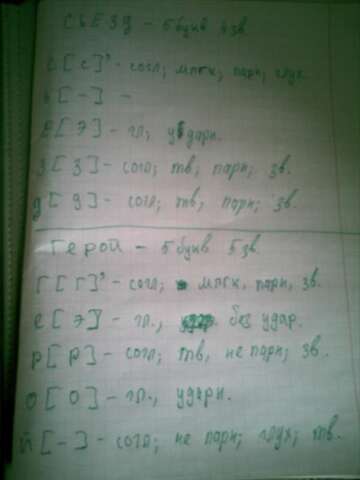 СЬЕЗД - 5 букв 4 зв.
С [С]' - согл; мягк; парн; глух.
Ь [-] -
Е [Э] - гл; ударн.
З [З] - согл; тв, парн; зв.
Д [Д] - согл; тв; парн; зв.
Герой - 5 букв 5 зв.
Г [Г]' - согл; мягк, парн, зв.
Е [Э] - гл., без удар.
Р [Р] - согл; тв, не парн; зв.
О [О] - гл., ударн.
Й [-] - согл; не парн; глух; тв.